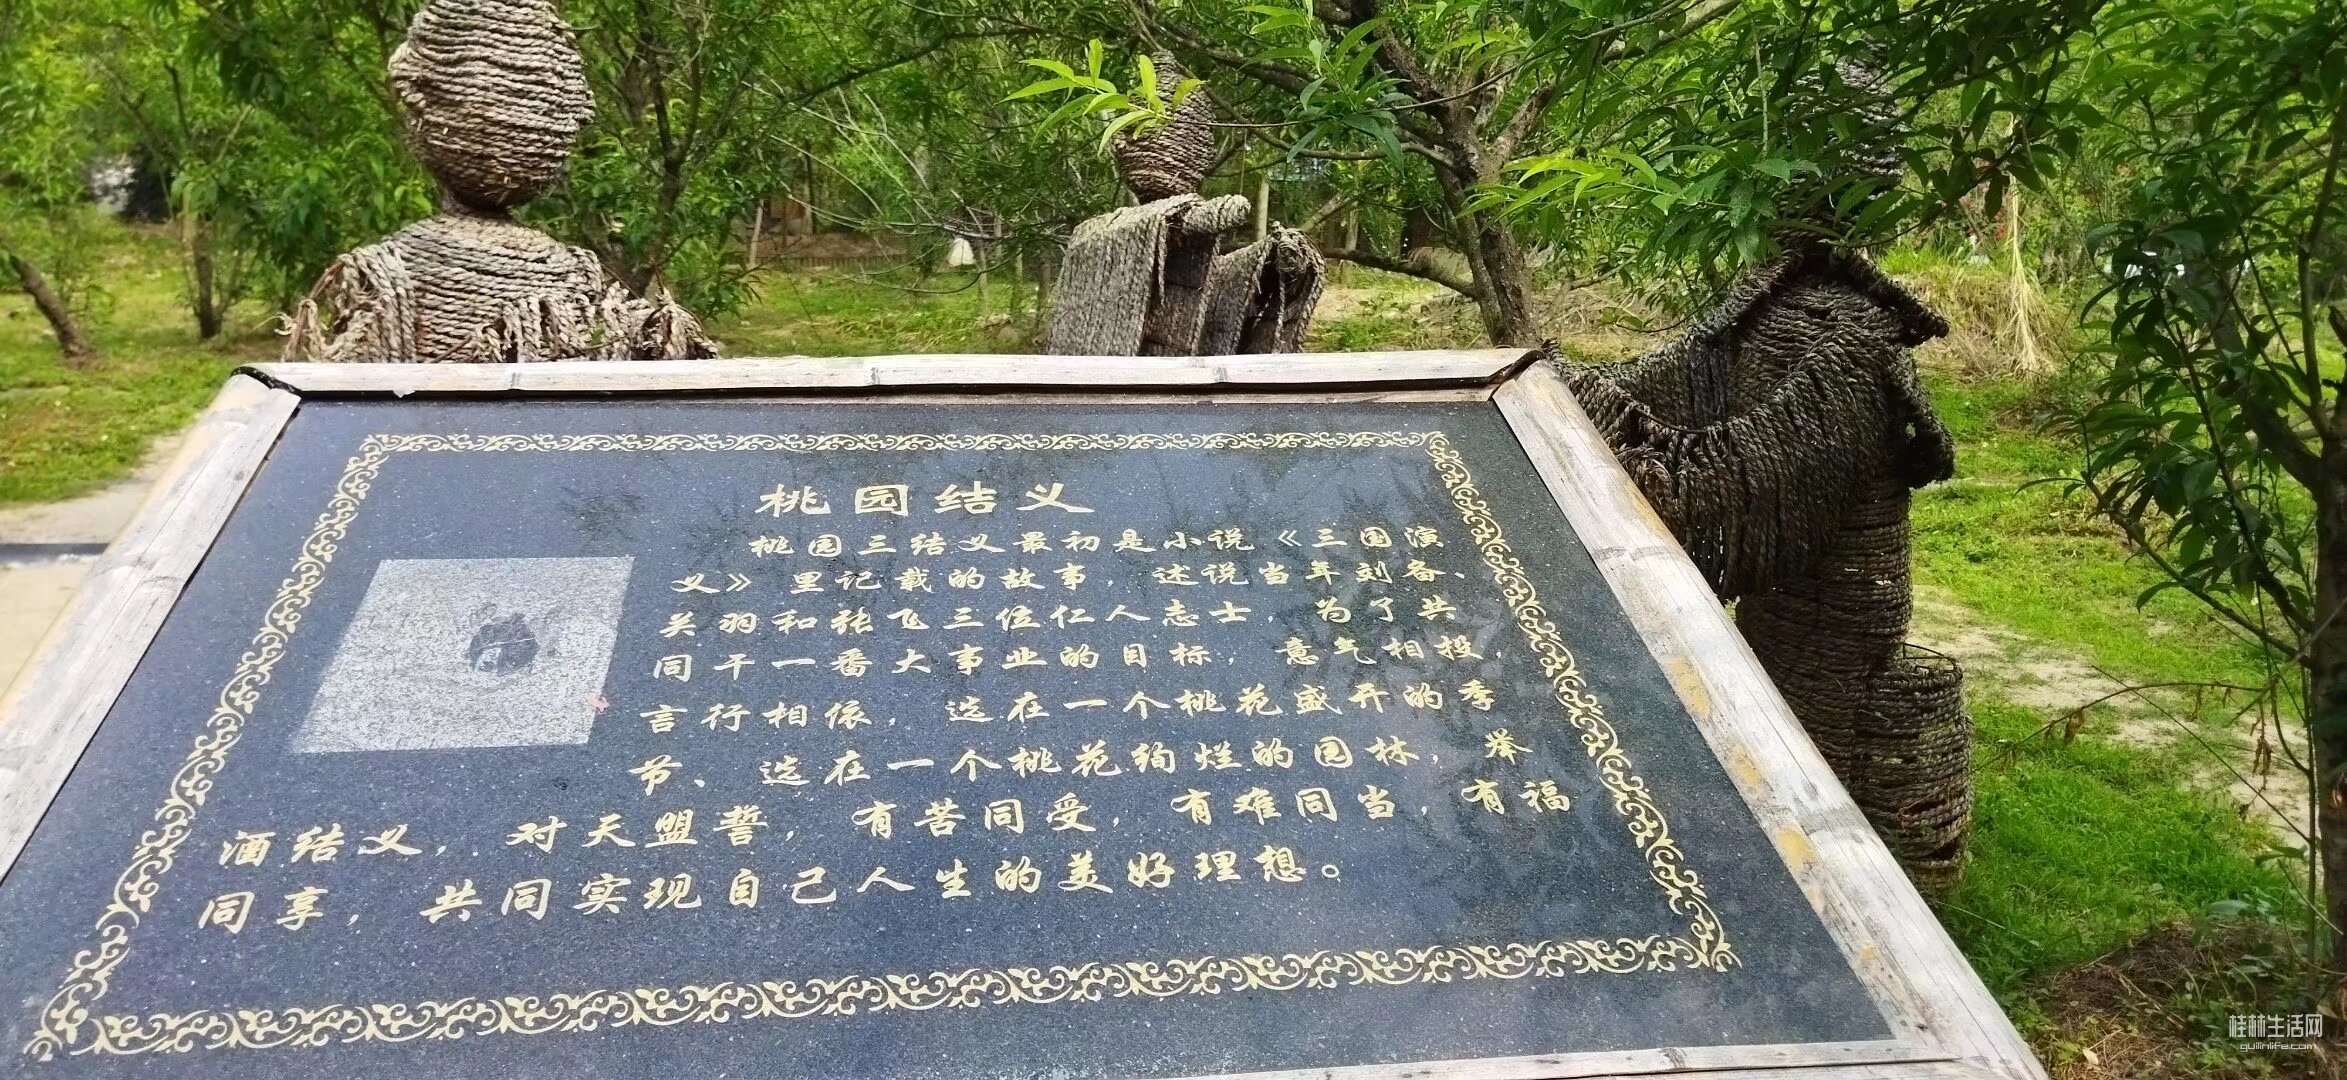 桃园结义
桃园三结义最初是小说《三国演
义》里记载的故事，述说当年刘备、
关羽和张飞三位仁人志士，为了共
同干一番大事业的目标，意气相投，
言行相依，选在一个桃花盛开的季
节、选在一个桃花绚烂的园林，举
酒结义，对天盟誓，有苦同受，有难同当，有福
同享，共同实现自己人生的美好理想。
桂林生活网
guilinlife.com